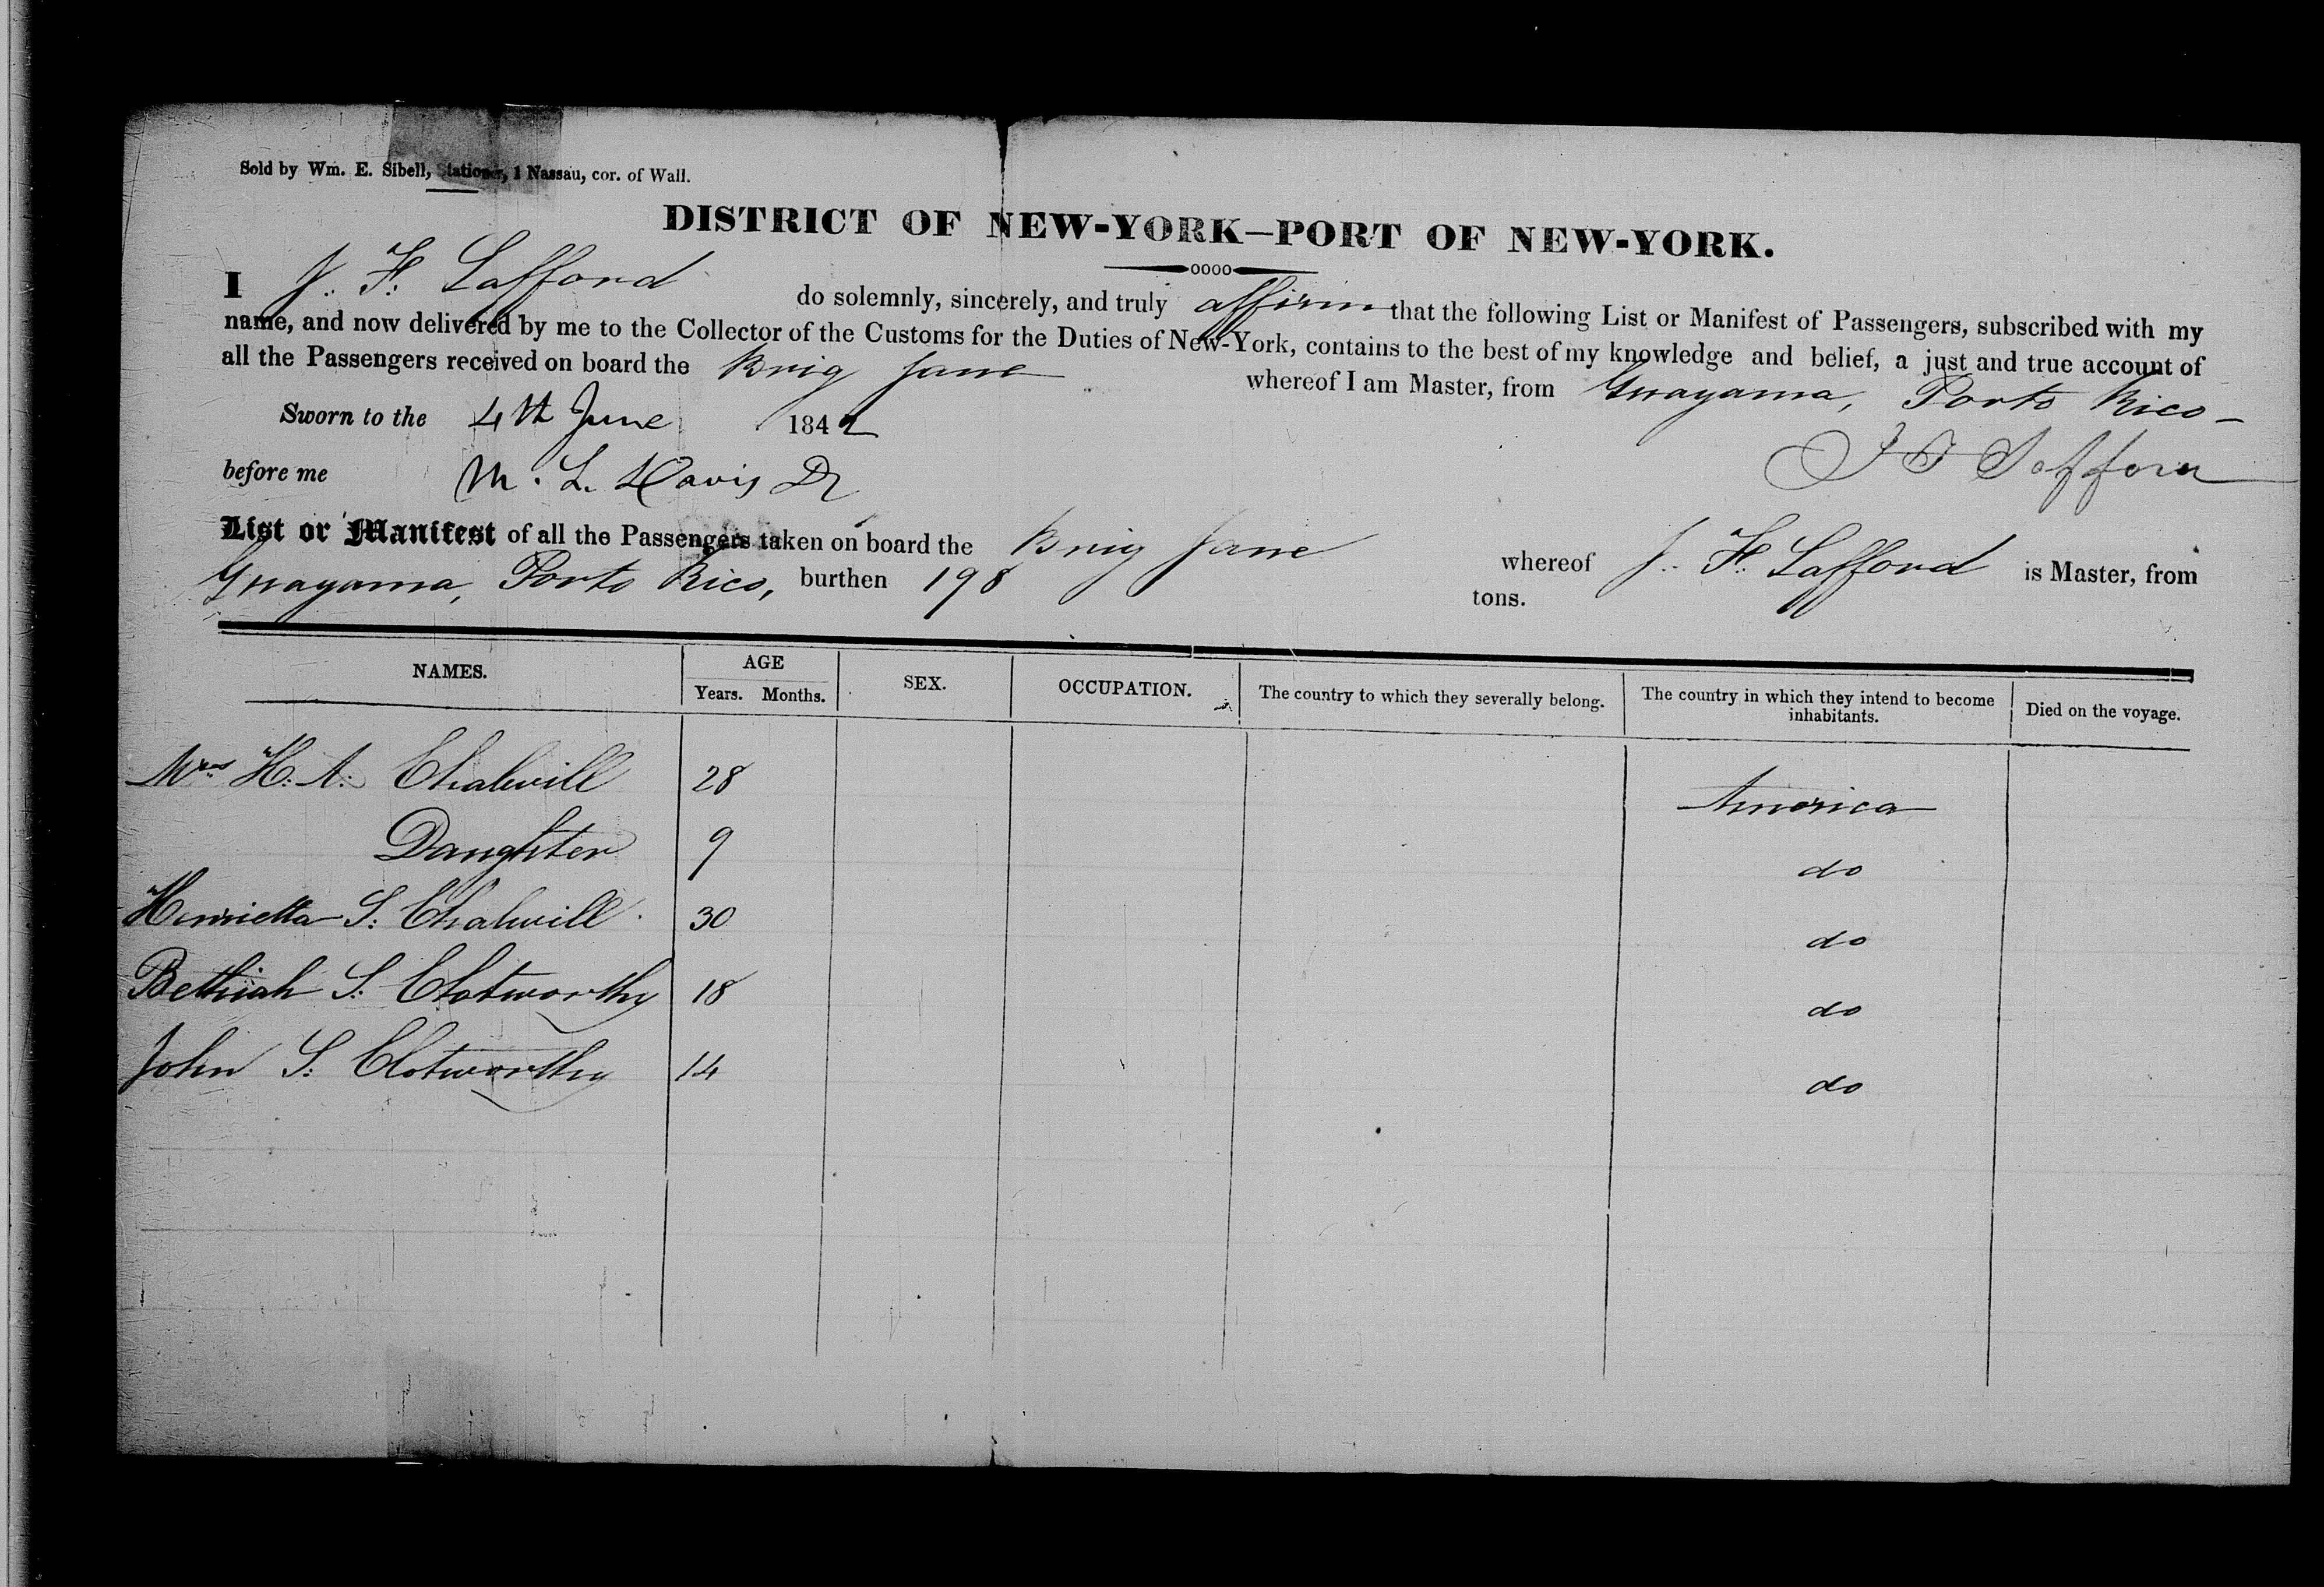 Sold by Wm. E. Sibell, Stationer, 1 Nassau, cor. of Wall.
DISTRICT OF NEW-YORK—PORT OF NEW-YORK.
I J. F. Safford do solemnly, sincerely, and truly affirm that the following List or Manifest of Passengers, subscribed with my
name, and now delivered by me to the Collector of the Customs for the Duties of New-York, contains to the best of my knowledge and belief, a just and true account of
all the Passengers received on board the Brig Jane whereof I am Master, from Guayama, Porto Rico
Sworn to the 4th June 1842
J F Safford
before me M. L. Davis
List or Manifest of all the Passengers taken on board the Brig Jane whereof J. F. Safford is Master, from
Guayama, Porto Rico, burthen 198 tons.
NAMES. AGE Years. Months. SEX. OCCUPATION. The country to which they severally belong. The country in which they intend to become inhabitants. Died on the voyage.
Mrs H. A. Chalwill 28 America
Daughter 9 do
Henrietta S. Chalwill 30 do
Bethiah S. Clotworthy 18 do
John S. Clotworthy 14 do